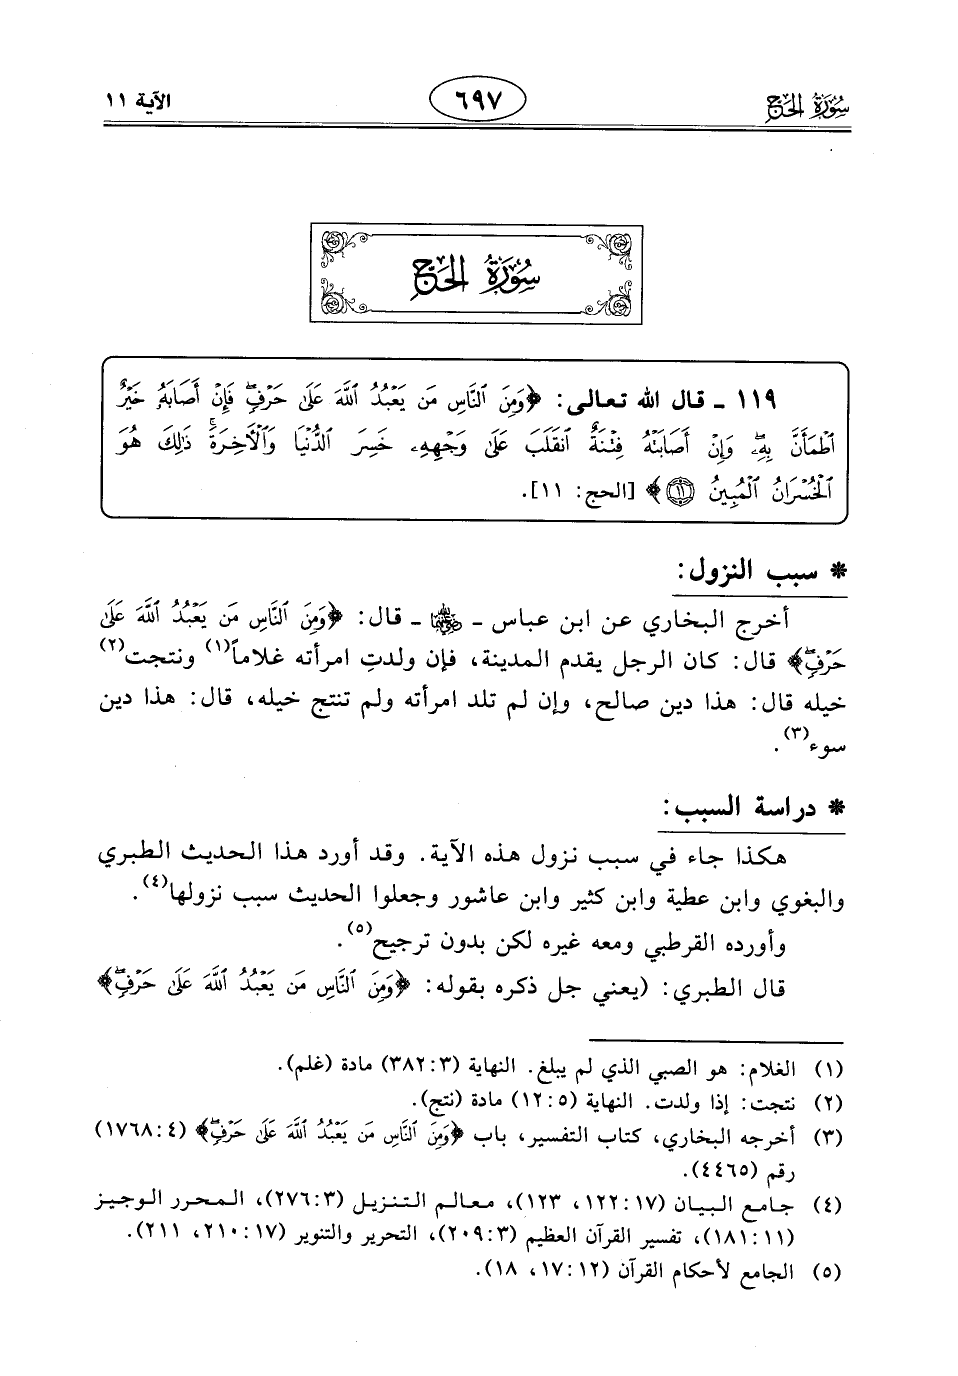 سُورَةُ الحَج
٦٩٧
الآية ١١
سُورَةُ الحَج
١١٩ ـ قال الله تعالى: ﴿وَمِنَ ٱلنَّاسِ مَن يَعۡبُدُ ٱللَّهَ عَلَىٰ حَرۡفٖۖ فَإِنۡ أَصَابَهُۥ خَيۡرٌ
ٱطۡمَأَنَّ بِهِۦۖ وَإِنۡ أَصَابَتۡهُ فِتۡنَةٌ ٱنقَلَبَ عَلَىٰ وَجۡهِهِۦ خَسِرَ ٱلدُّنۡيَا وَٱلۡأٓخِرَةَۚ ذَٰلِكَ هُوَ
ٱلۡخُسۡرَانُ ٱلۡمُبِينُ ١١﴾ [الحج: ١١].
* سبب النزول:
أخرج البخاري عن ابن عباس ـ ﷺ ـ قال: ﴿وَمِنَ ٱلنَّاسِ مَن يَعۡبُدُ ٱللَّهَ عَلَىٰ
حَرۡفٖۖ﴾ قال: كان الرجل يقدم المدينة، فإن ولدتِ امرأته غلاماً(١) ونتجت(٢)
خيله قال: هذا دين صالح، وإن لم تلد امرأته ولم تنتج خيله، قال: هذا دين
سوء(٣).
* دراسة السبب:
هكذا جاء في سبب نزول هذه الآية. وقد أورد هذا الحديث الطبري
والبغوي وابن عطية وابن كثير وابن عاشور وجعلوا الحديث سبب نزولها(٤).
وأورده القرطبي ومعه غيره لكن بدون ترجيح(٥).
قال الطبري: (يعني جل ذكره بقوله: ﴿وَمِنَ ٱلنَّاسِ مَن يَعۡبُدُ ٱللَّهَ عَلَىٰ حَرۡفٖۖ﴾
(١) الغلام: هو الصبي الذي لم يبلغ. النهاية (٣٨٢:٣) مادة (غلم).
(٢) نتجت: إذا ولدت. النهاية (١٢:٥) مادة (نتج).
(٣) أخرجه البخاري، كتاب التفسير، باب ﴿وَمِنَ ٱلنَّاسِ مَن يَعۡبُدُ ٱللَّهَ عَلَىٰ حَرۡفٖۖ﴾ (١٧٦٨:٤)
رقم (٤٤٦٥).
(٤) جامع البيان (١٢٢:١٧، ١٢٣)، معالم التنزيل (٢٧٦:٣)، المحرر الوجيز
(١٨١:١١)، تفسير القرآن العظيم (٢٠٩:٣)، التحرير والتنوير (٢١٠:١٧، ٢١١).
(٥) الجامع لأحكام القرآن (١٧:١٢، ١٨).